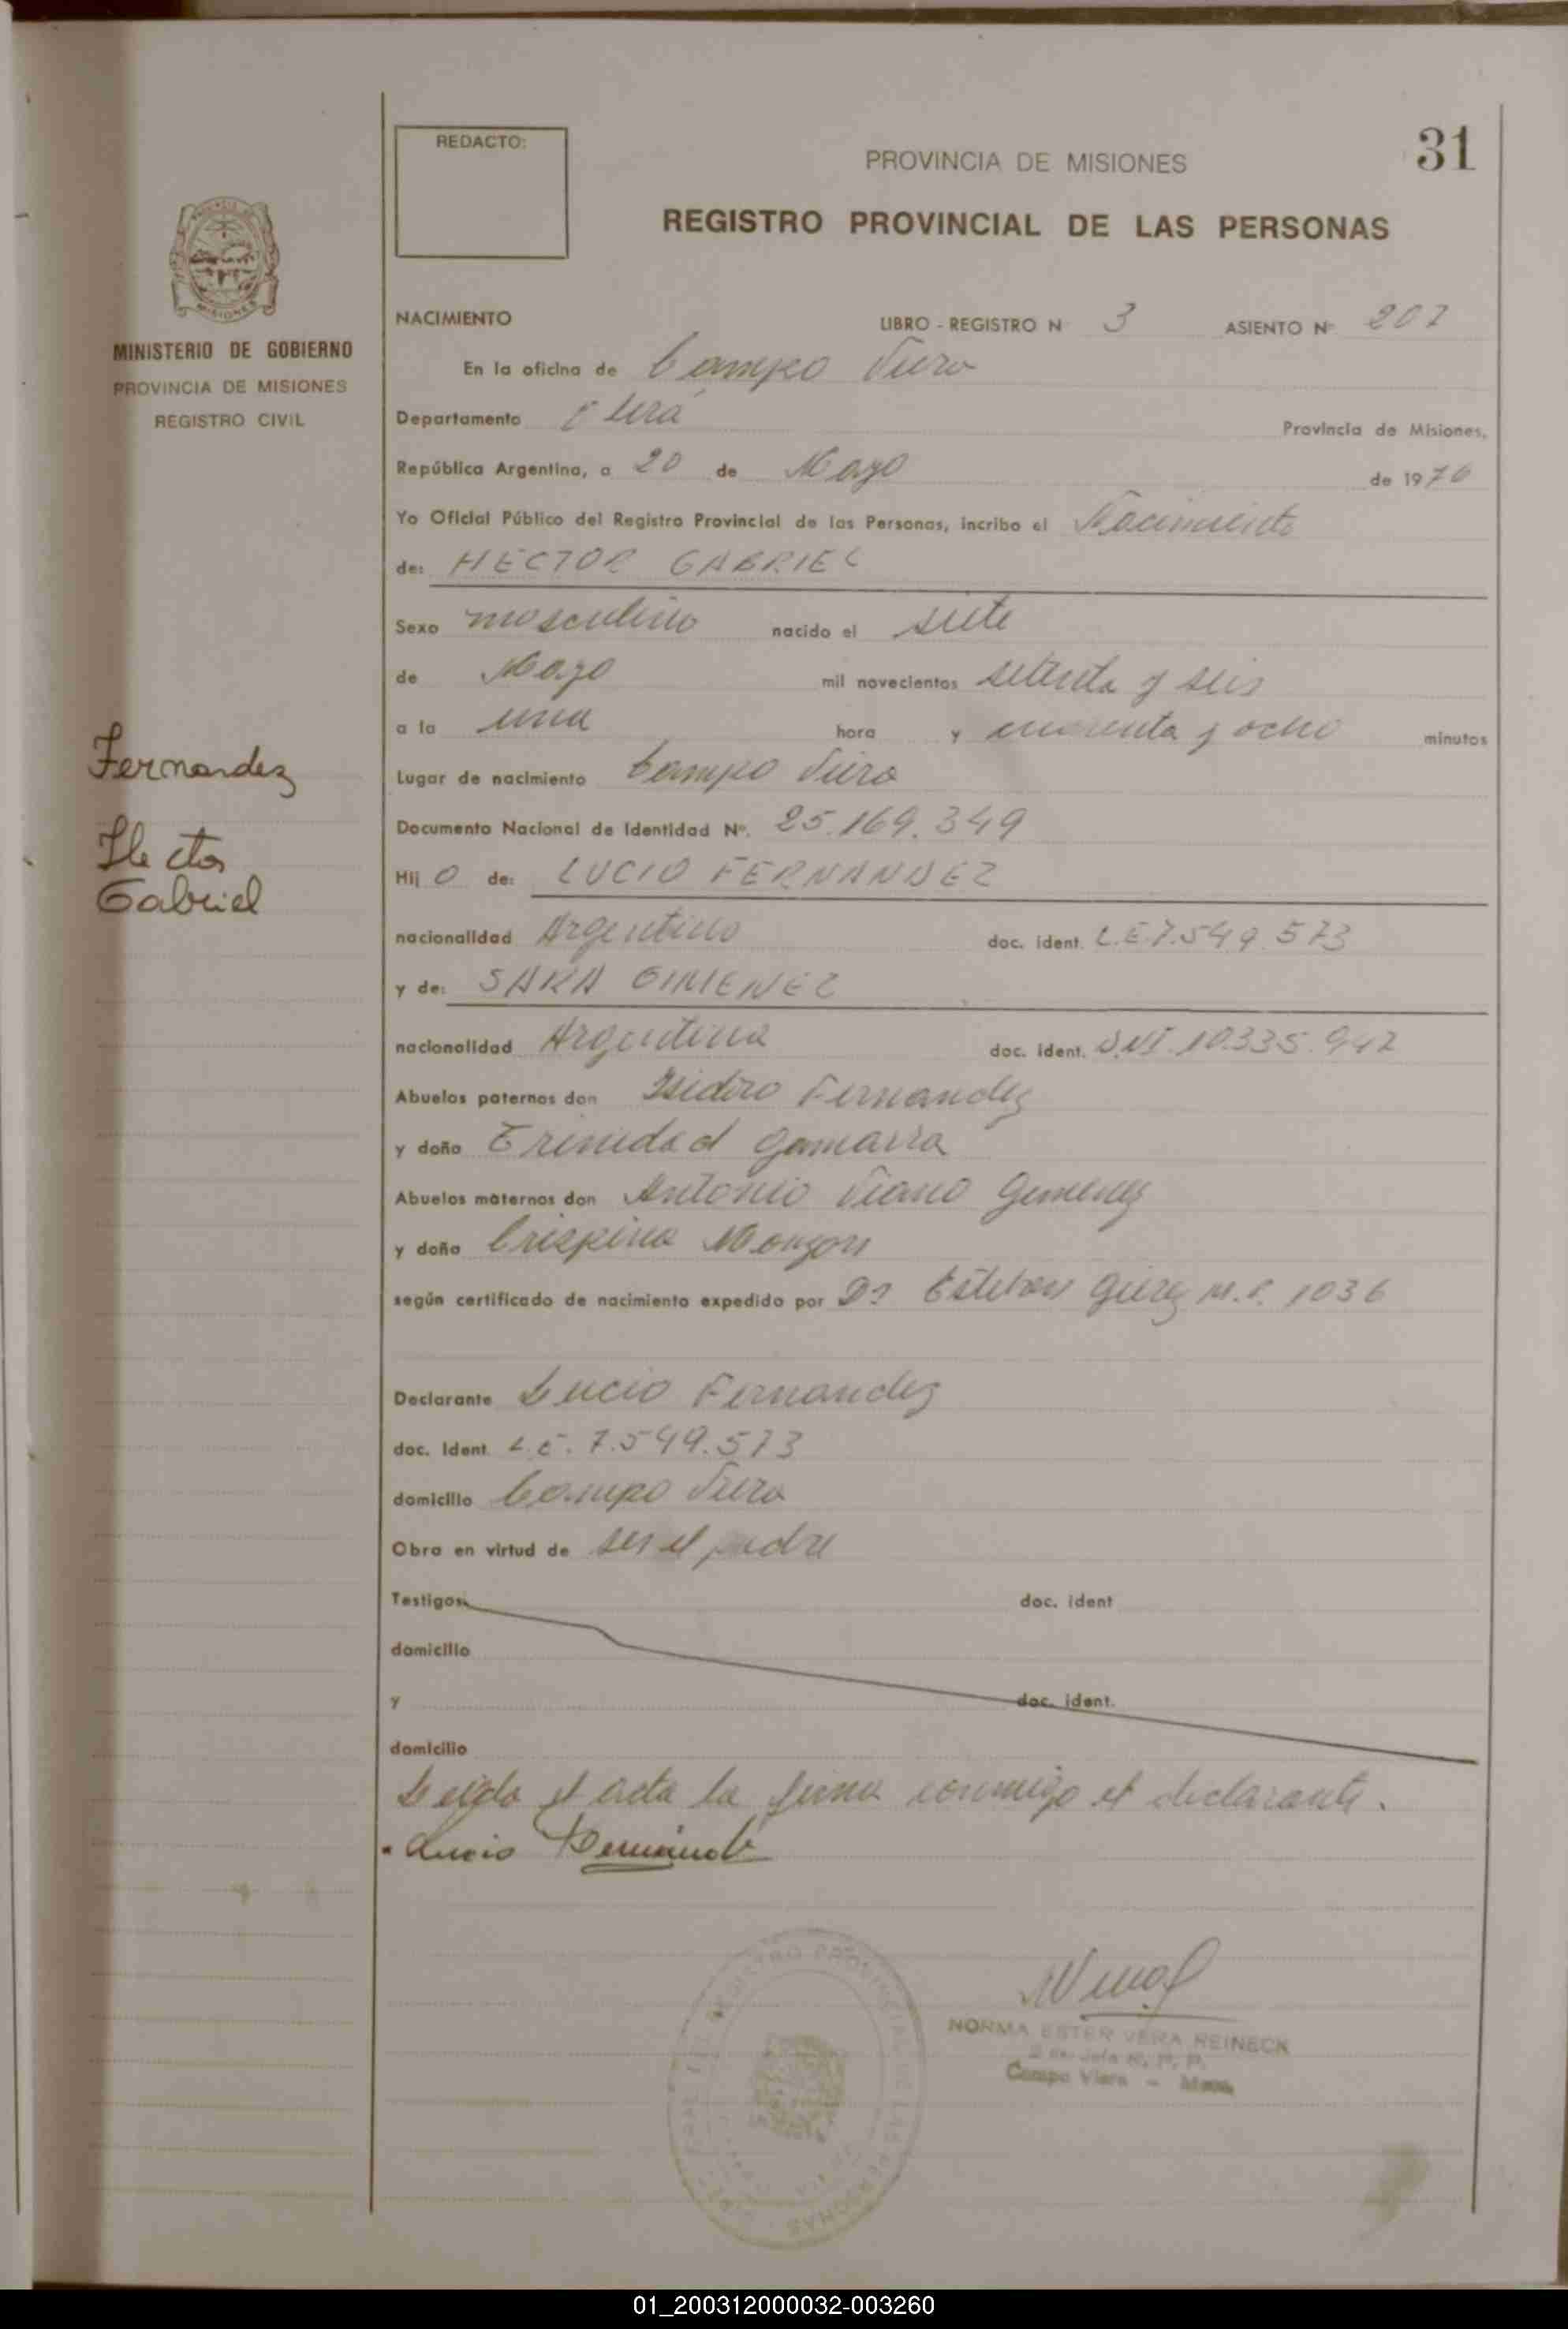 31
REDACTO:
PROVINCIA DE MISIONES
REGISTRO PROVINCIAL DE LAS PERSONAS
MISIONES
MINISTERIO DE GOBIERNO
PROVINCIA DE MISIONES
REGISTRO CIVIL
NACIMIENTO LIBRO - REGISTRO N 3 ASIENTO Nº 207
En la oficina de Campo Viera
Departamento Oberá Provincia de Misiones,
República Argentina, a 20 de Mayo de 1976
Yo Oficial Público del Registro Provincial de las Personas, incribo el Nacimiento
de: HECTOR GABRIEL
Sexo masculino nacido el siete
de Mayo mil novecientos setenta y seis
a la una hora y cuarenta y ocho minutos
Lugar de nacimiento Campo Viera
Documento Nacional de Identidad Nº. 25.169.349
Hij o de: LUCIO FERNANDEZ
nacionalidad Argentino doc. ident. L.E 7.549.573
y de: SARA GIMENEZ
nacionalidad Argentina doc. ident. D.N.I. 10.335.947
Abuelos paternos don Isidro Fernandez
y doña Trinidad Gamarra
Abuelos maternos don Antonio Gimenez
y doña Crispina Monzon
según certificado de nacimiento expedido por Dr Esteban M.P. 1036
Declarante Lucio Fernandez
doc. Ident. L.E. 7.549.573
domicilio Campo Viera
Obra en virtud de ser el padre
Testigos doc. ident
domicilio
y doc. ident.
domicilio
Leida el acta la firma conmigo el declarante.
Lucio
Fernandez
Hector
Gabriel
NORMA ESTER VERA REINECK
Jefe R. P. P.
Campo Viera - Mnes
REGISTRO PROVINCIAL DE LAS PERSONAS
01_200312000032-003260